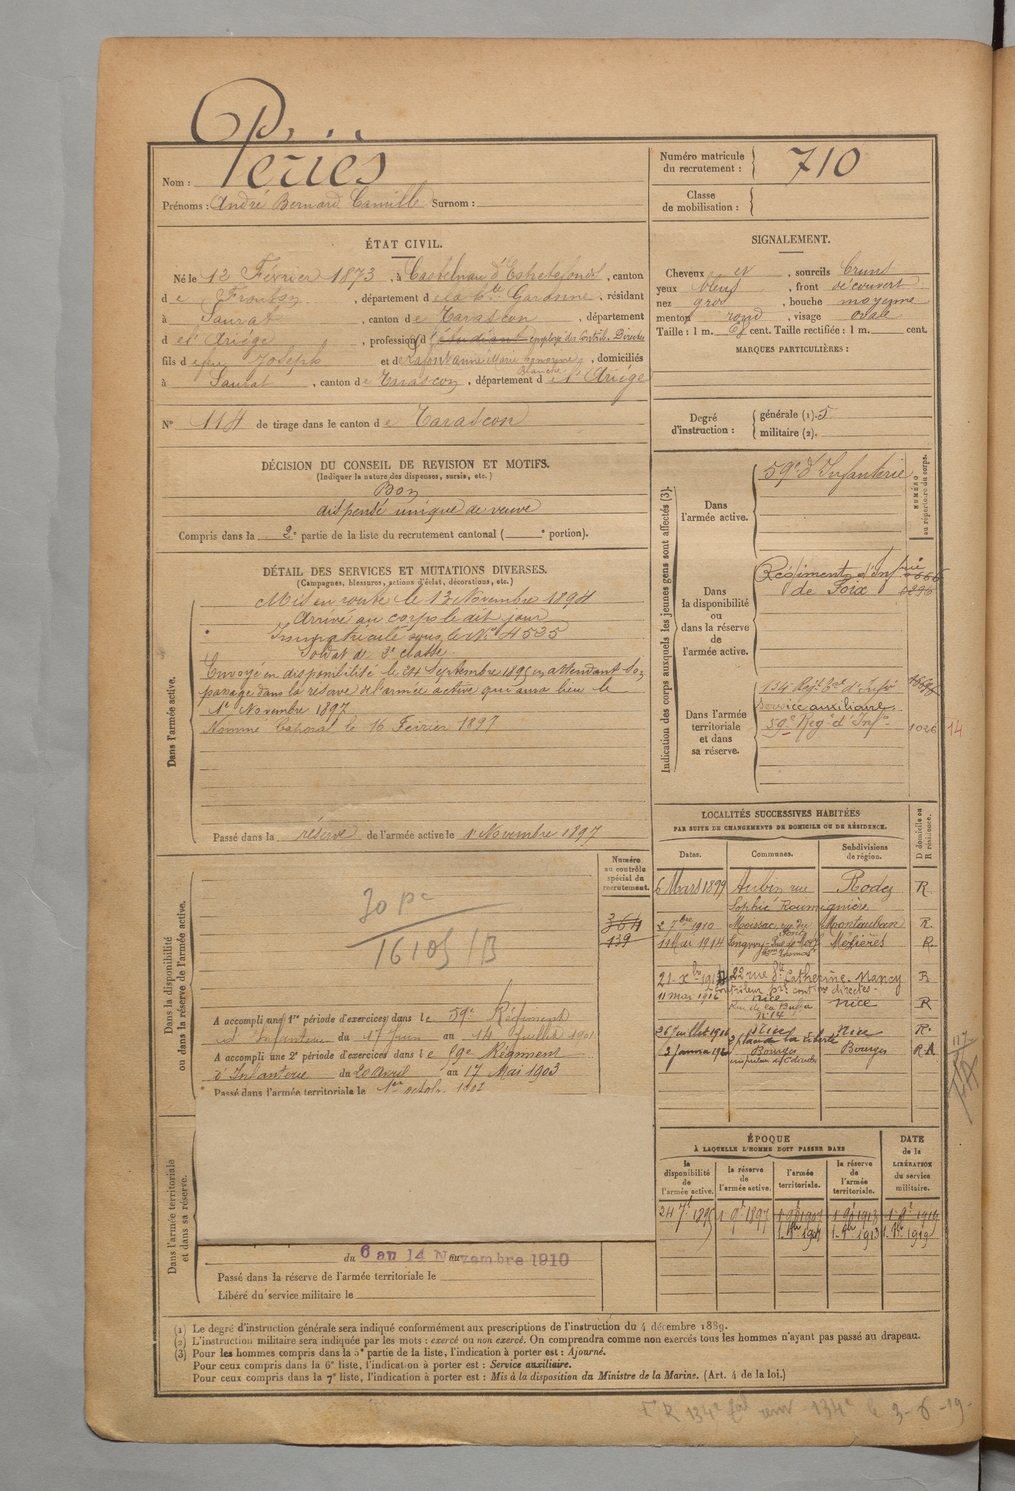 Nom : Périès
Prénoms : André Bernard Camille Surnom :
Numéro matricule du recrutement : 710
Classe de mobilisation :
ÉTAT CIVIL.
Né le 12 Février 1873, à Castelnau d'Estretefonds, canton
de Fronton, département de la Hte Garonne, résidant
à Saurat, canton de Tarascon, département
de l'Ariège, profession d'étudiant employé des Contrib. Directes
fils de feu Joseph et de Lafont Anne Marie Blanche, domiciliés
à Saurat, canton de Tarascon, département de l'Ariège
N° 114 de tirage dans le canton de Tarascon
SIGNALEMENT.
Cheveux et, sourcils bruns
yeux bleus, front découvert
nez gros, bouche moyenne
menton rond, visage ovale
Taille : 1 m. 68 cent. Taille rectifiée : 1 m. cent.
MARQUES PARTICULIÈRES :
Degré d'instruction : générale (1). 5
militaire (2).
DÉCISION DU CONSEIL DE REVISION ET MOTIFS.
(Indiquer la nature des dispenses, sursis, etc.)
Bon
dispensé unique de veuve
Compris dans la 2e partie de la liste du recrutement cantonal ( e portion).
DÉTAIL DES SERVICES ET MUTATIONS DIVERSES.
(Campagnes, blessures, actions d'éclat, décorations, etc.)
Dans l'armée active.
Mis en route le 13 Novembre 1894
Arrivé au corps le dit jour
Immatriculé sous le No 4535
Soldat de 2e classe.
Envoyé en disponibilité le 24 Septembre 1895 en attendant son
passage dans la réserve de l'armée active qui aura lieu le
1er Novembre 1897
Nommé Caporal le 16 Février 1897
Passé dans la réserve de l'armée active le 1er Novembre 1897
Indication des corps auxquels les jeunes gens sont affectés (3).
NUMÉRO au répertoire du corps.
Dans l'armée active.
59e d'Infanterie
Dans la disponibilité ou dans la réserve de l'armée active.
Régiment d'Infrie
de Foix
Dans l'armée territoriale et dans sa réserve.
134 Régt Tal d'Infie
Service auxiliaire
59e Regt d'Infie 1026 14
LOCALITÉS SUCCESSIVES HABITÉES
PAR SUITE DE CHANGEMENTS DE DOMICILE OU DE RÉSIDENCE.
Dates. Communes. Subdivisions de région. D domicile ou R résidence.
6 Mars 1899 Aubin rue Rodez R.
Sophie Roumiguière
2 7bre 1910 Moissac Montauban R.
11 Mai 1914 Mézières R.
22 rue Ste Catherine Nancy R
11 mar 1916 Nice nice R
No 14
26 Juillet 1916 Nice Nice R.
Place de la liberté
Bourges Bourges R
Dans la disponibilité ou dans la réserve de l'armée active.
Numéro au contrôle spécial du recrutement.
364
139
A accompli une 1re période d'exercices dans le 59e Régiment
d'Infanterie du 17 Juin au 14 Juillet 1901
A accompli une 2e période d'exercices dans le 59e Régiment
d'Infanterie du 20 Avril au 17 Mai 1903
Passé dans l'armée territoriale le 1er octob.
Dans l'armée territoriale et dans sa réserve.
du 6 au 14 Novembre 1910
Passé dans la réserve de l'armée territoriale le
Libéré du service militaire le
ÉPOQUE
À LAQUELLE L'HOMME DOIT PASSER DANS
DATE de la LIBÉRATION du service militaire.
la disponibilité de l'armée active. la réserve de l'armée active. l'armée territoriale. la réserve de l'armée territoriale.
24 7e 1895 1 9e 1897
(1) Le degré d'instruction générale sera indiqué conformément aux prescriptions de l'instruction du 4 décembre 1889.
(2) L'instruction militaire sera indiquée par les mots : exercé ou non exercé. On comprendra comme non exercés tous les hommes n'ayant pas passé au drapeau.
(3) Pour les hommes compris dans la 5e partie de la liste, l'indication à porter est : Ajourné.
Pour ceux compris dans la 6e liste, l'indication à porter est : Service auxiliaire.
Pour ceux compris dans la 7e liste, l'indication à porter est : Mis à la disposition du Ministre de la Marine. (Art. 4 de la loi.)